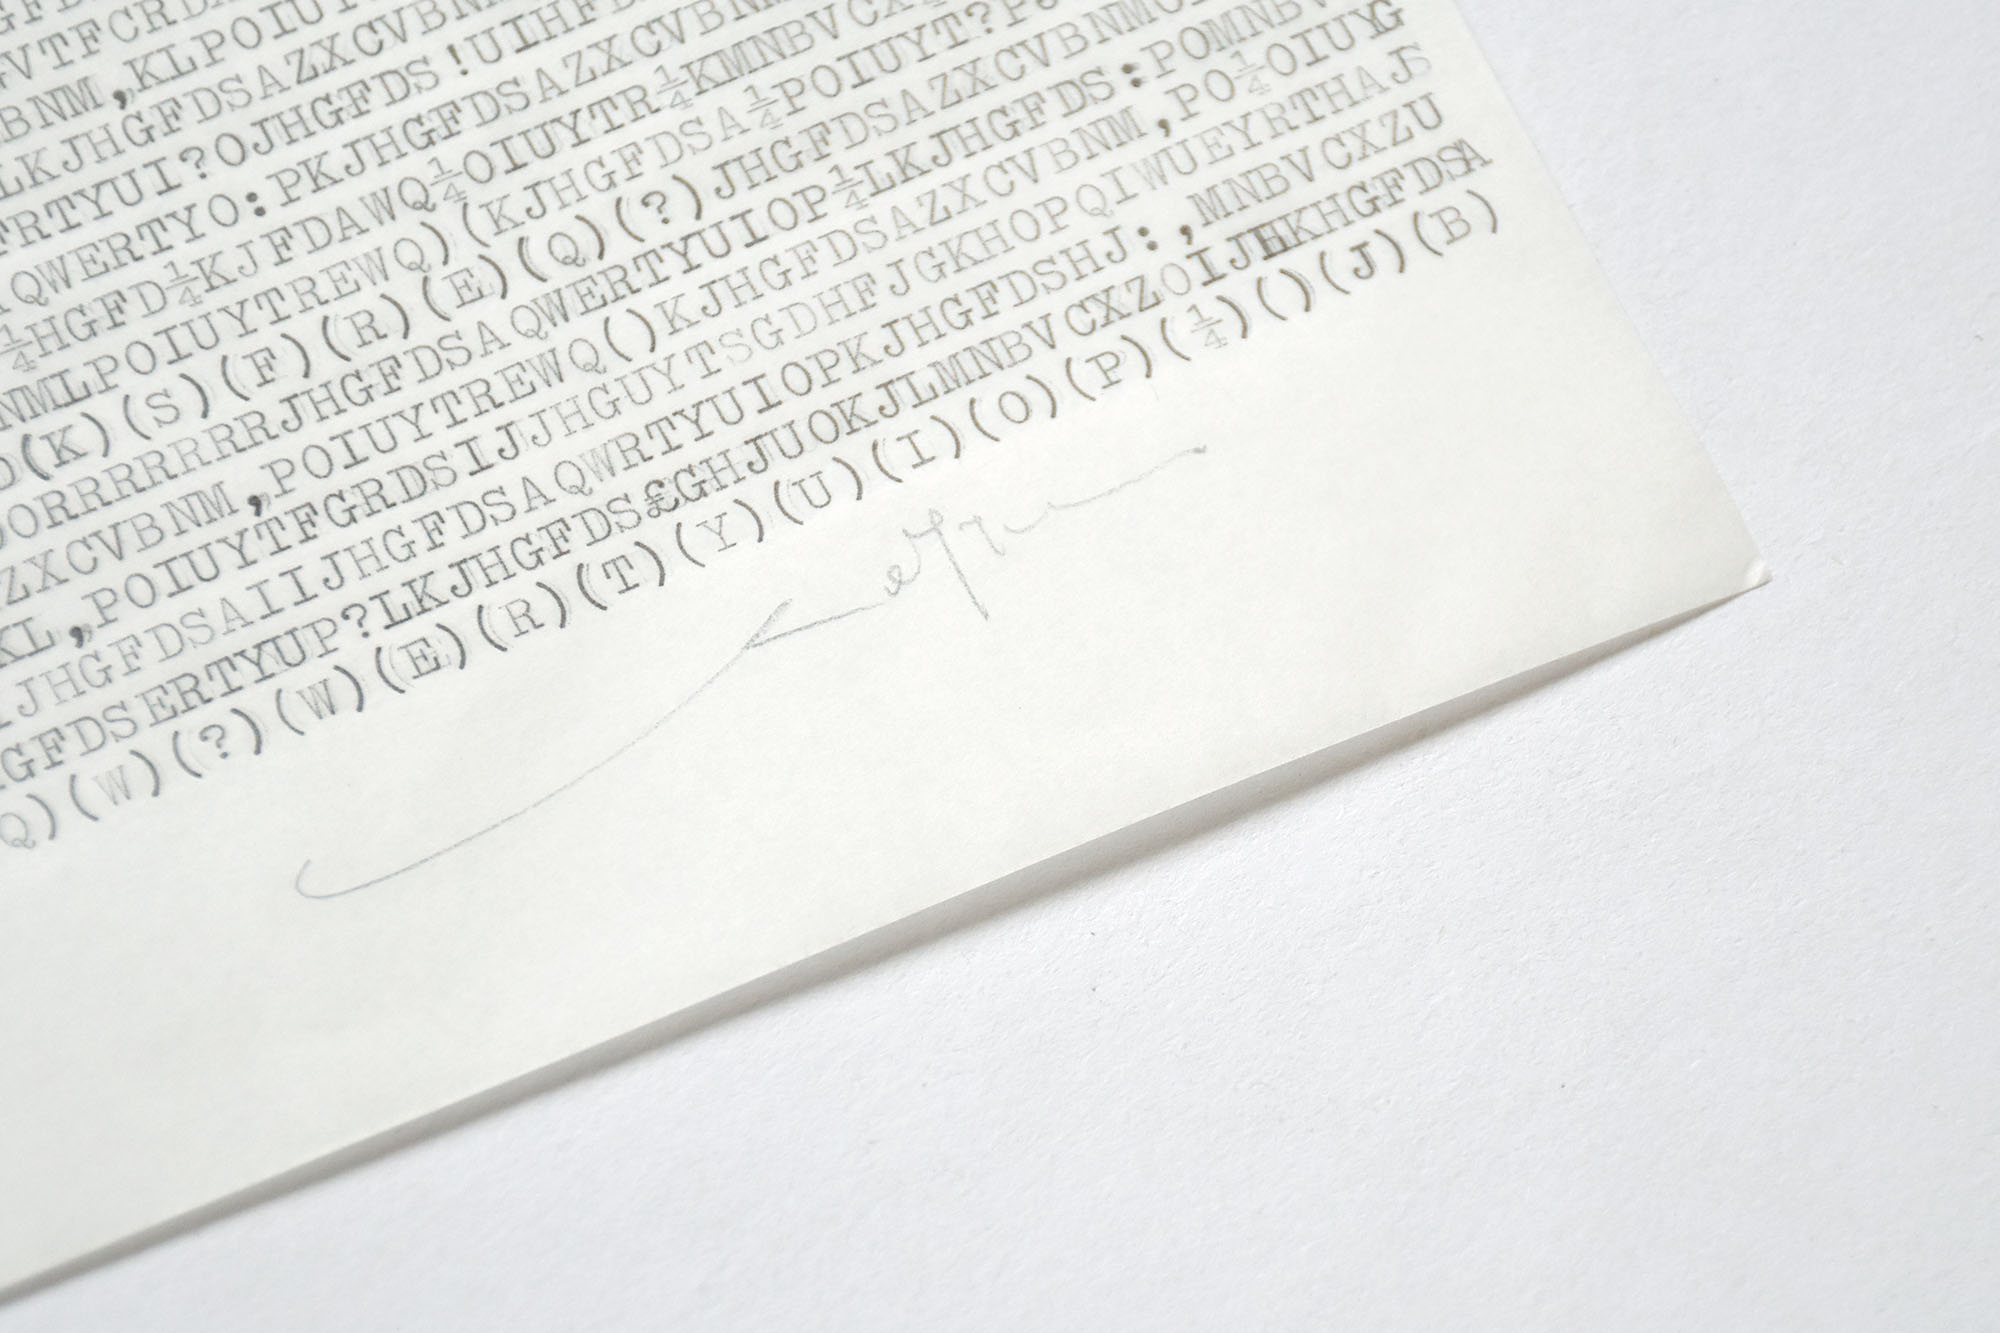 GFD
VTFCRDA
BNM,KLPOIUY
LKJHGFDSAZXCVBN
FRTYUI?OJHGFDS!UIHFD
QWERTYO:PKJHGFDSAZXCVBNM
¼HGFD¼KJFDAWQ¼OIUYTR¼KMNBVCX
NMLPOIUYTREWQ)(KJHGFDSA¼POIUYT?P
D(K)(S)(F)(R)(E)(Q)(?)JHGFDSAZXCVBNMO
OORRRRRRRRJHGFDSAQWERTYUIOP¼LKJHGFDS:POMNBV
ZXCVBNM,POIUYTREWQ()KJHGFDSAZXCVBNM,PO¼OIUYG
KL,POIUYTFGRDSIJJHGUYTSGDHFJGKHOPQIWUEYRTHAJS
IJHGFDSAIIJHGFDSAQWRTYUIOPKJHGFDSHJ:,MNBVCXZU
GFDSERTYUP?LKJHGFDS£GHJUOKJLMNBVCXZOIJHKHGFDSA
Q)(W)(?)(W)(E)(R)(T)(Y)(U)(I)(O)(P)(¼)()(J)(B)